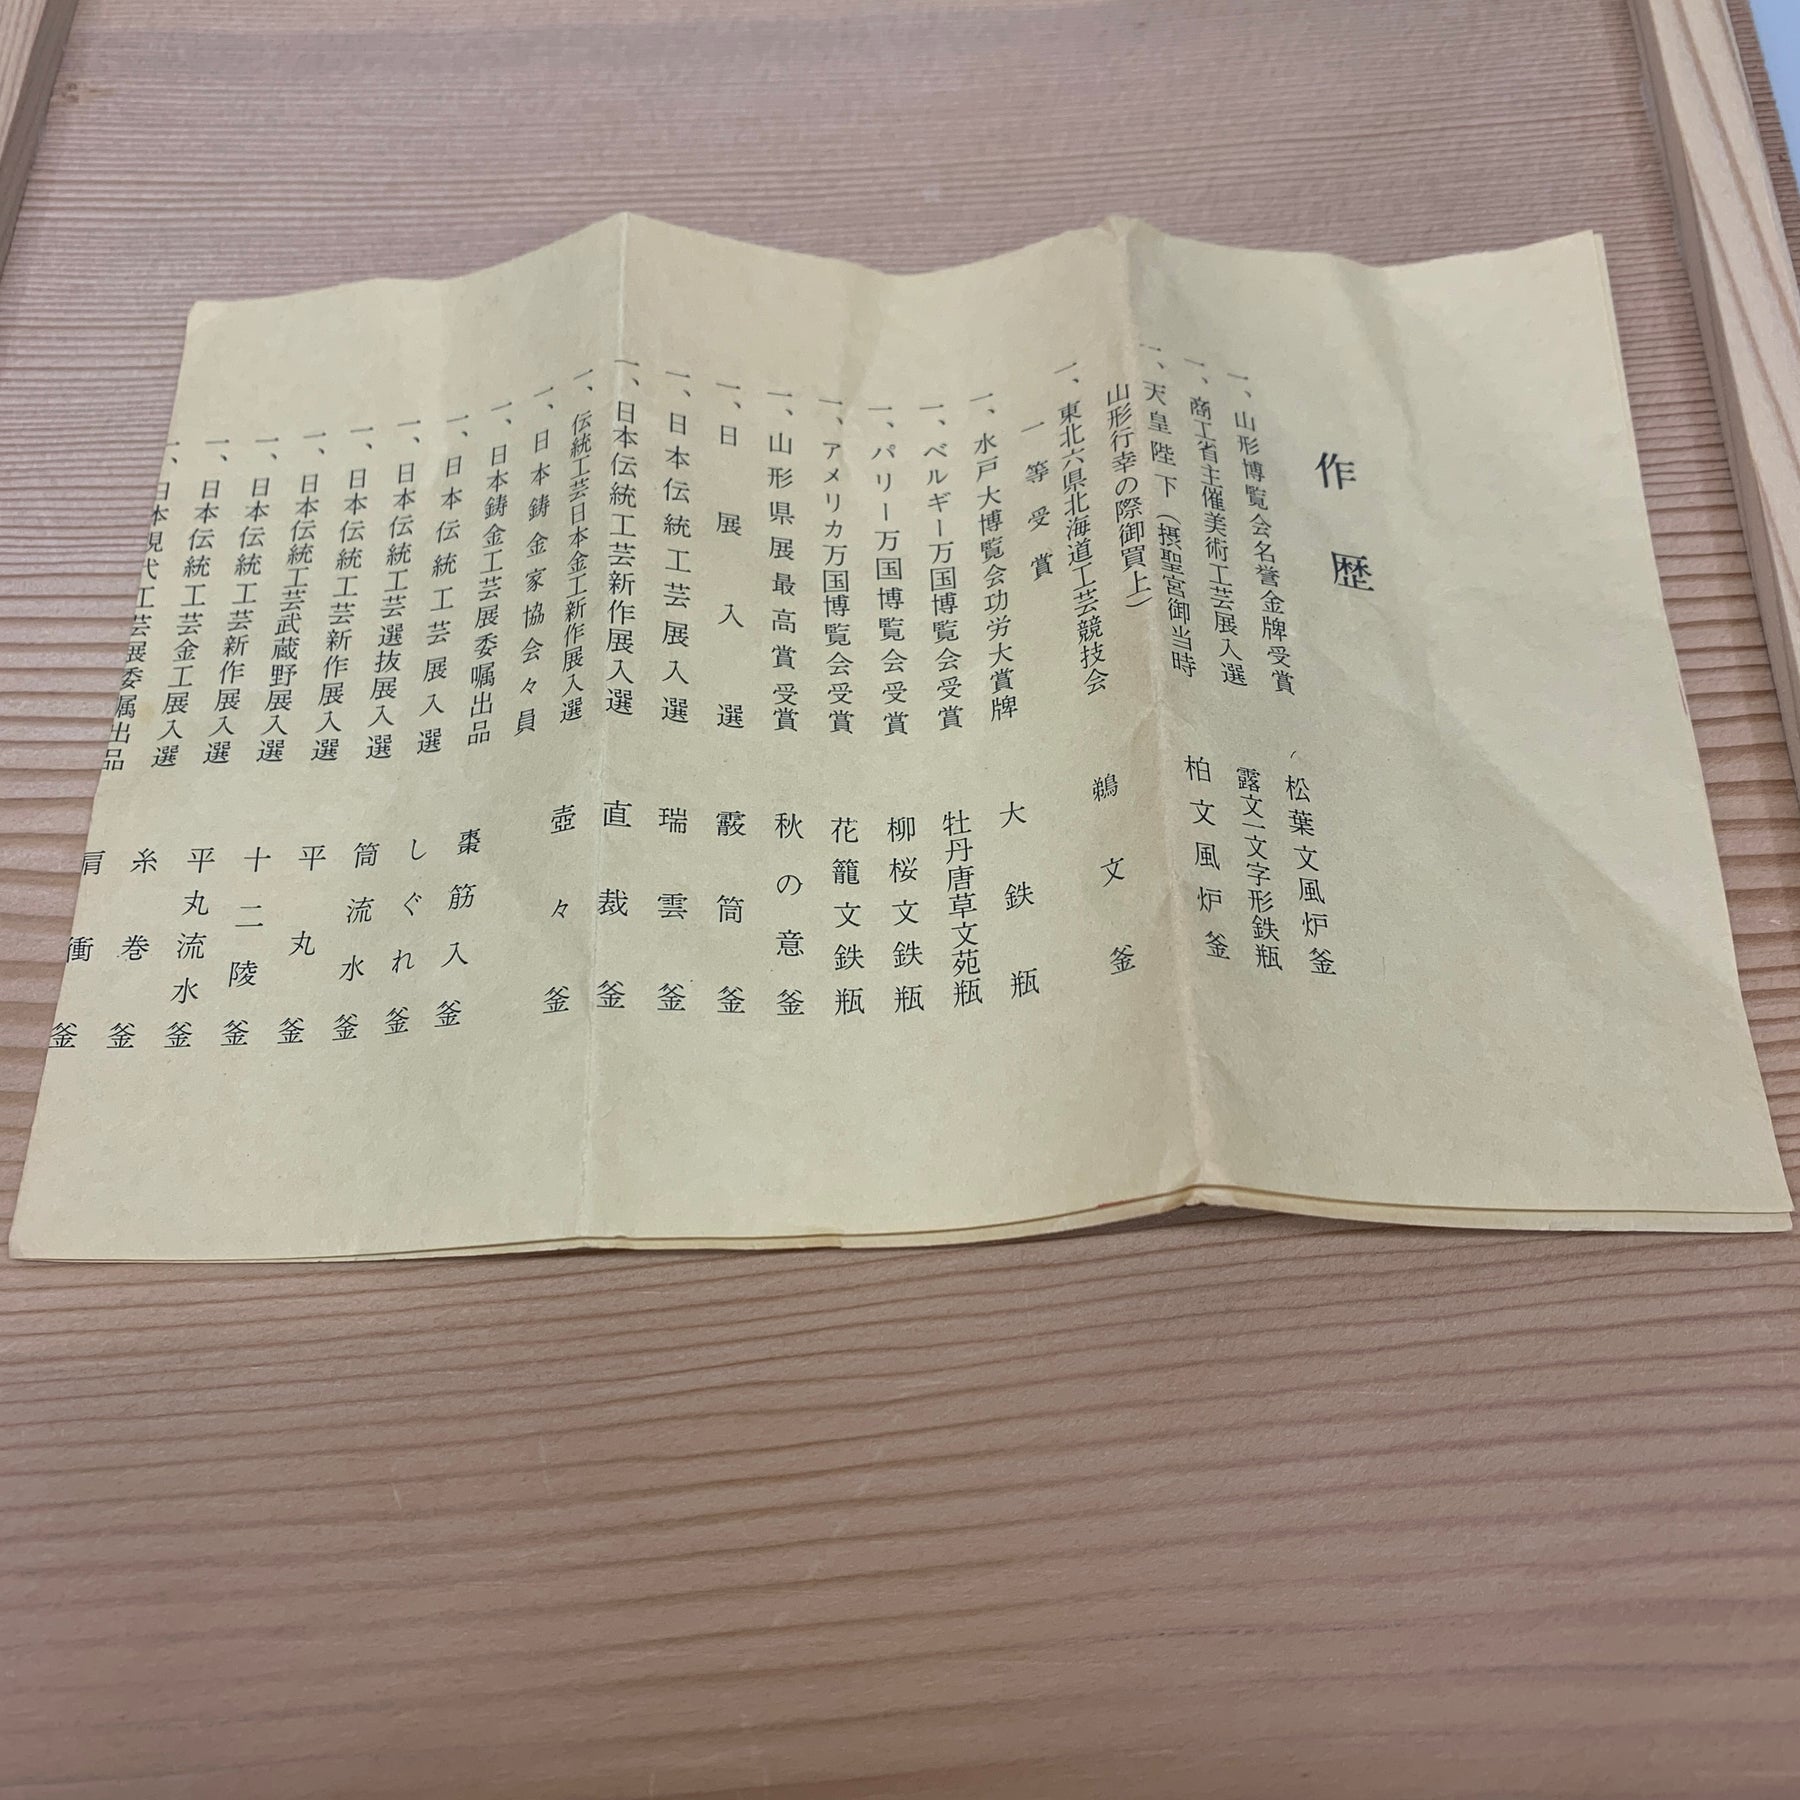 作歴
一、山形博覧会名誉金牌受賞 松葉文風炉釜
一、商工省主催美術工芸展入選 露文一文字形鉄瓶
一、天皇陛下（摂聖宮御当時
山形行幸の際御買上） 柏文風炉釜
一、東北六県北海道工芸競技会
一等受賞 鵜文釜
一、水戸大博覧会功労大賞牌 大鉄瓶
一、ベルギー万国博覧会受賞 牡丹唐草文苑瓶
一、パリー万国博覧会受賞 柳桜文鉄瓶
一、アメリカ万国博覧会受賞 花籠文鉄瓶
一、山形県展最高賞受賞 秋の意釜
一、日展入選 霰筒釜
一、日本伝統工芸展入選 瑞雲釜
一、日本伝統工芸新作展入選 直裁釜
一、伝統工芸日本金工新作展入選 壺々釜
一、日本鋳金家協会々員
一、日本鋳金工芸展委嘱出品 棗筋入釜
一、日本伝統工芸展入選 しぐれ釜
一、日本伝統工芸選抜展入選 筒流水釜
一、日本伝統工芸新作展入選 平丸釜
一、日本伝統工芸武蔵野展入選 十二陵釜
一、日本伝統工芸新作展入選 平丸流水釜
一、日本伝統工芸金工展入選 糸巻釜
一、日本現代工芸展委属出品 肩衝釜